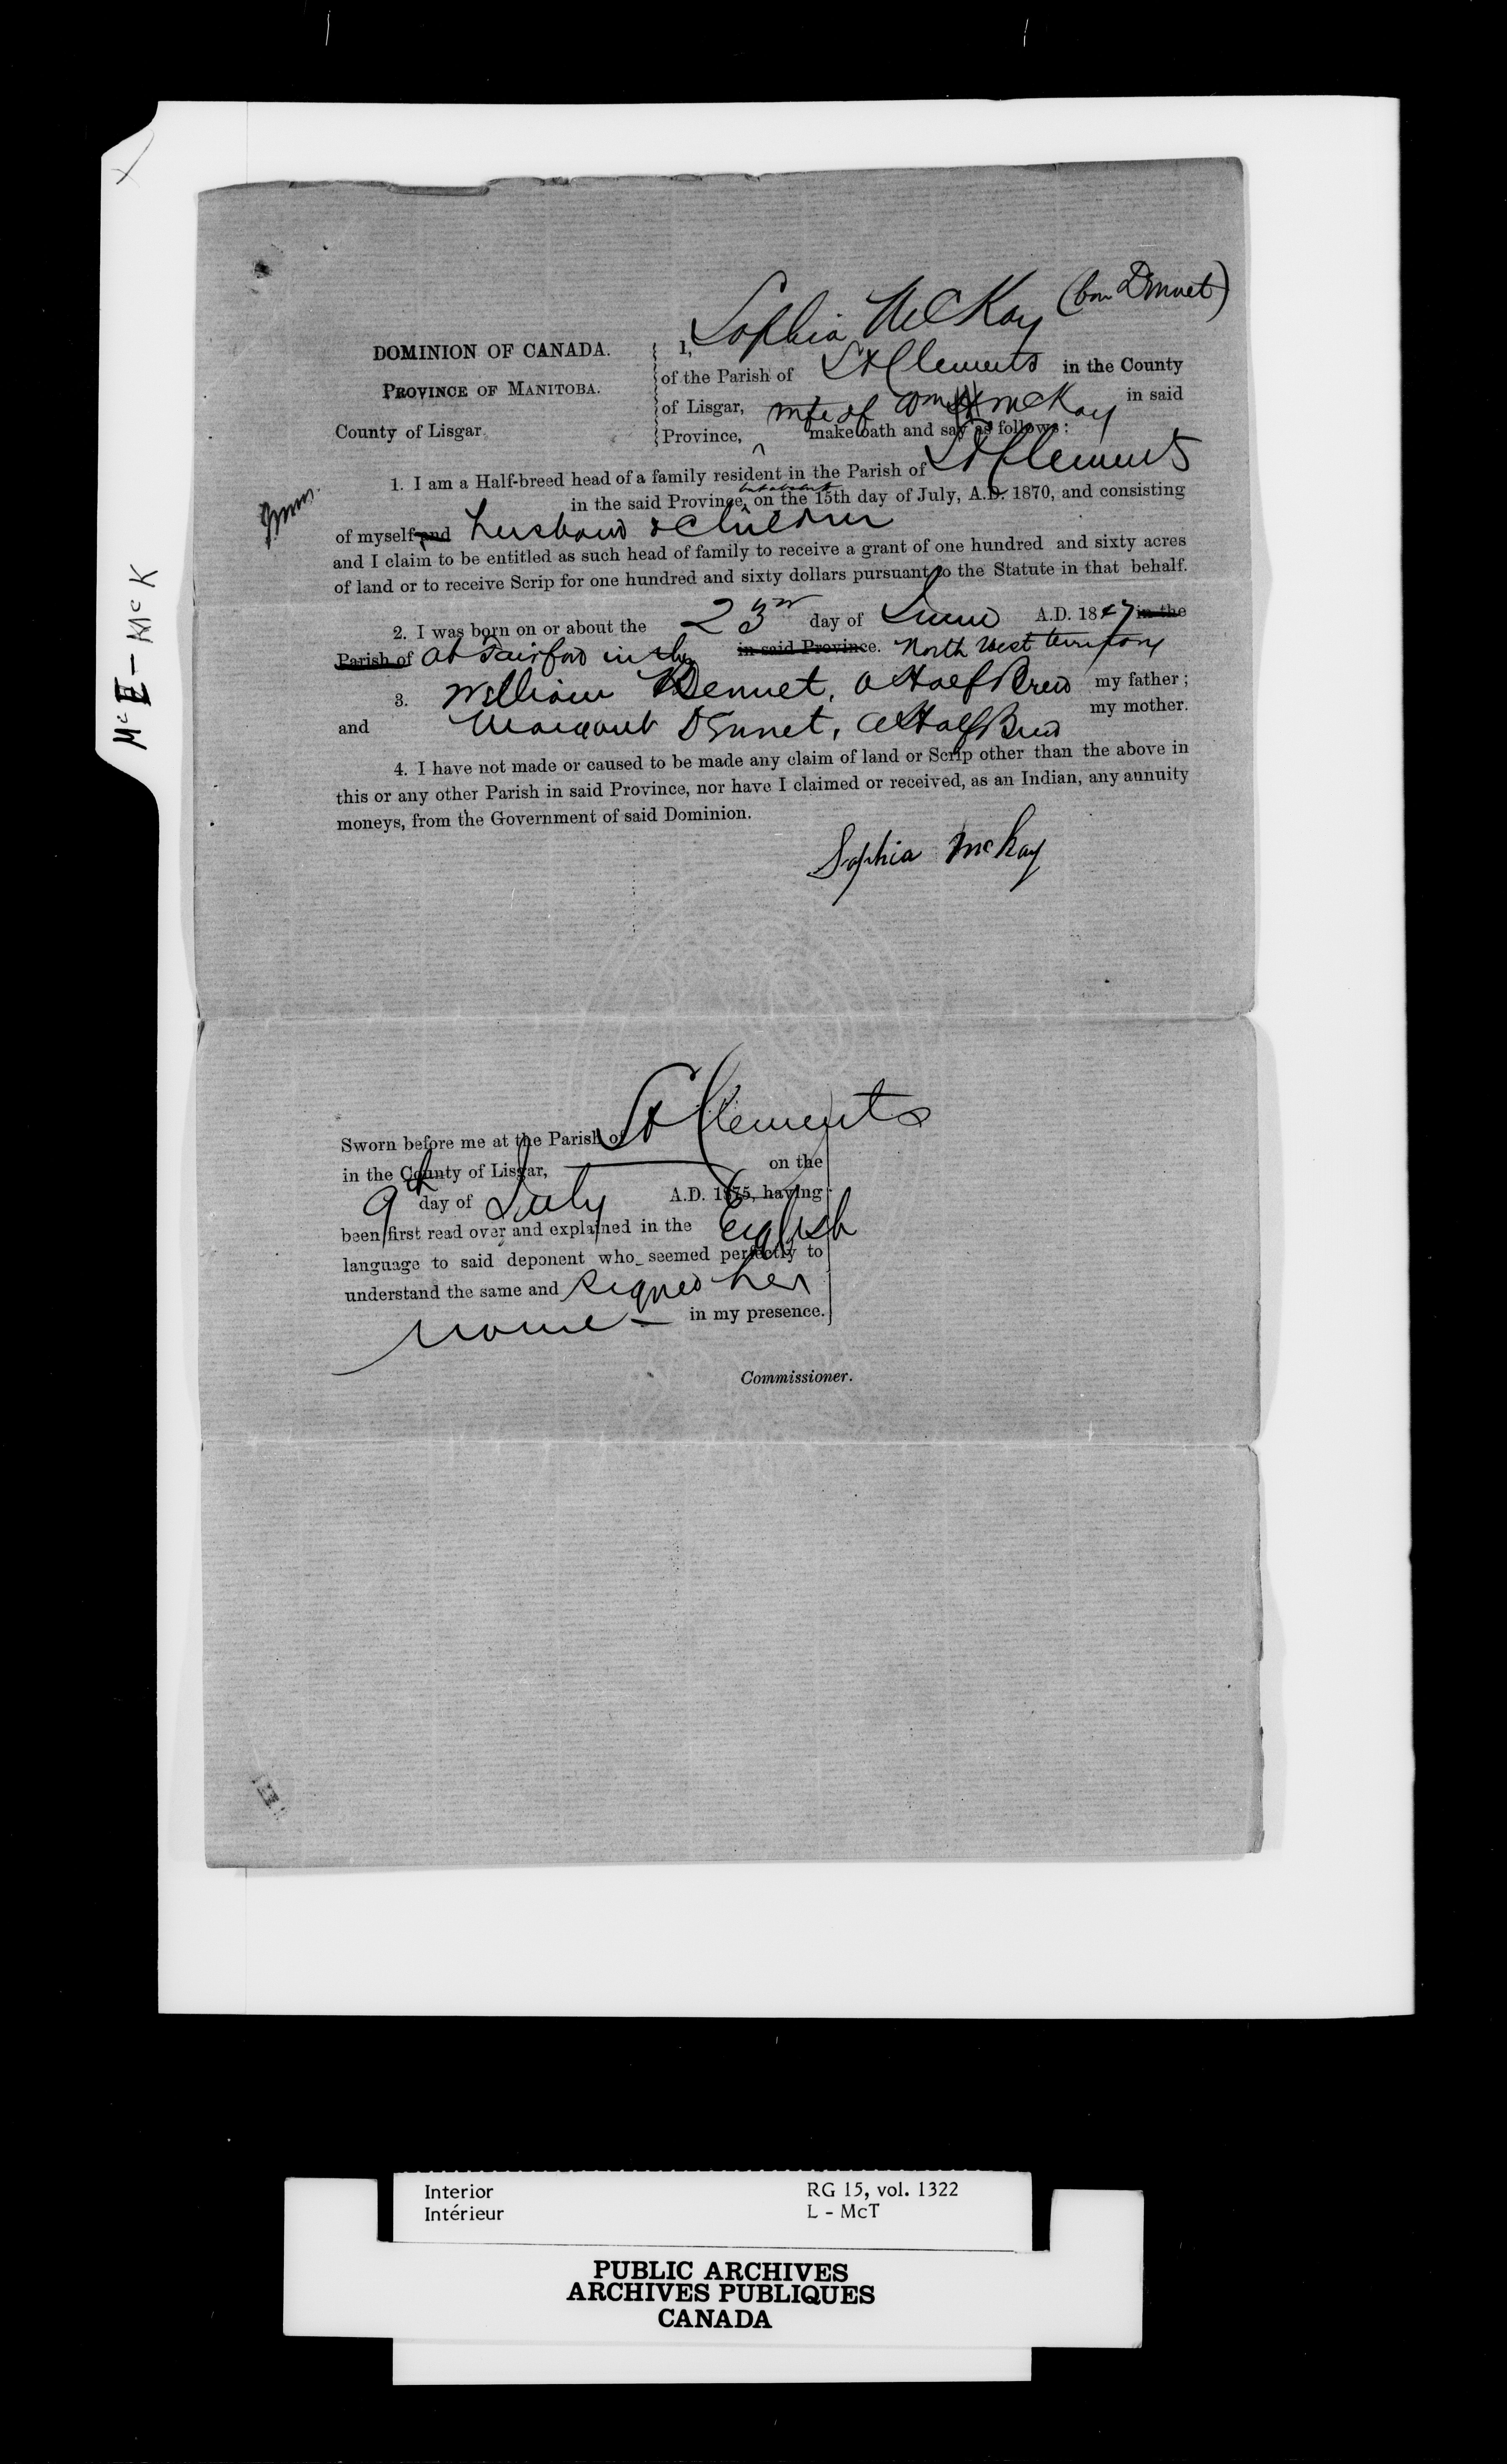 McE - McK
Sophia McKay (born Dennet)
DOMINION OF CANADA.
PROVINCE OF MANITOBA.
County of Lisgar.
I,
of the Parish of St Clements in the County
of Lisgar, wife of Wm McKay in said
Province, make oath and say as follows:
1. I am a Half-breed head of a family resident in the Parish of St Clements
in the said Province, on the 15th day of July, A.D. 1870, and consisting
of myself and husband & children
and I claim to be entitled as such head of family to receive a grant of one hundred and sixty acres
of land or to receive Scrip for one hundred and sixty dollars pursuant to the Statute in that behalf.
2. I was born on or about the 23rd day of June A.D. 1847 in the
Parish of at Fairford in the in said Province. North West territory
3. William Dennet, a Half Breed my father;
and Margaret Dennet, a Half Breed my mother.
4. I have not made or caused to be made any claim of land or Scrip other than the above in
this or any other Parish in said Province, nor have I claimed or received, as an Indian, any annuity
moneys, from the Government of said Dominion.
Sophia McKay
Sworn before me at the Parish of St Clements
in the County of Lisgar, on the
9th day of July A.D. 1875, having
been first read over and explained in the English
language to said deponent who seemed perfectly to
understand the same and signed her
name in my presence.
Commissioner.
Interior RG 15, vol. 1322
Intérieur L - McT
PUBLIC ARCHIVES
ARCHIVES PUBLIQUES
CANADA